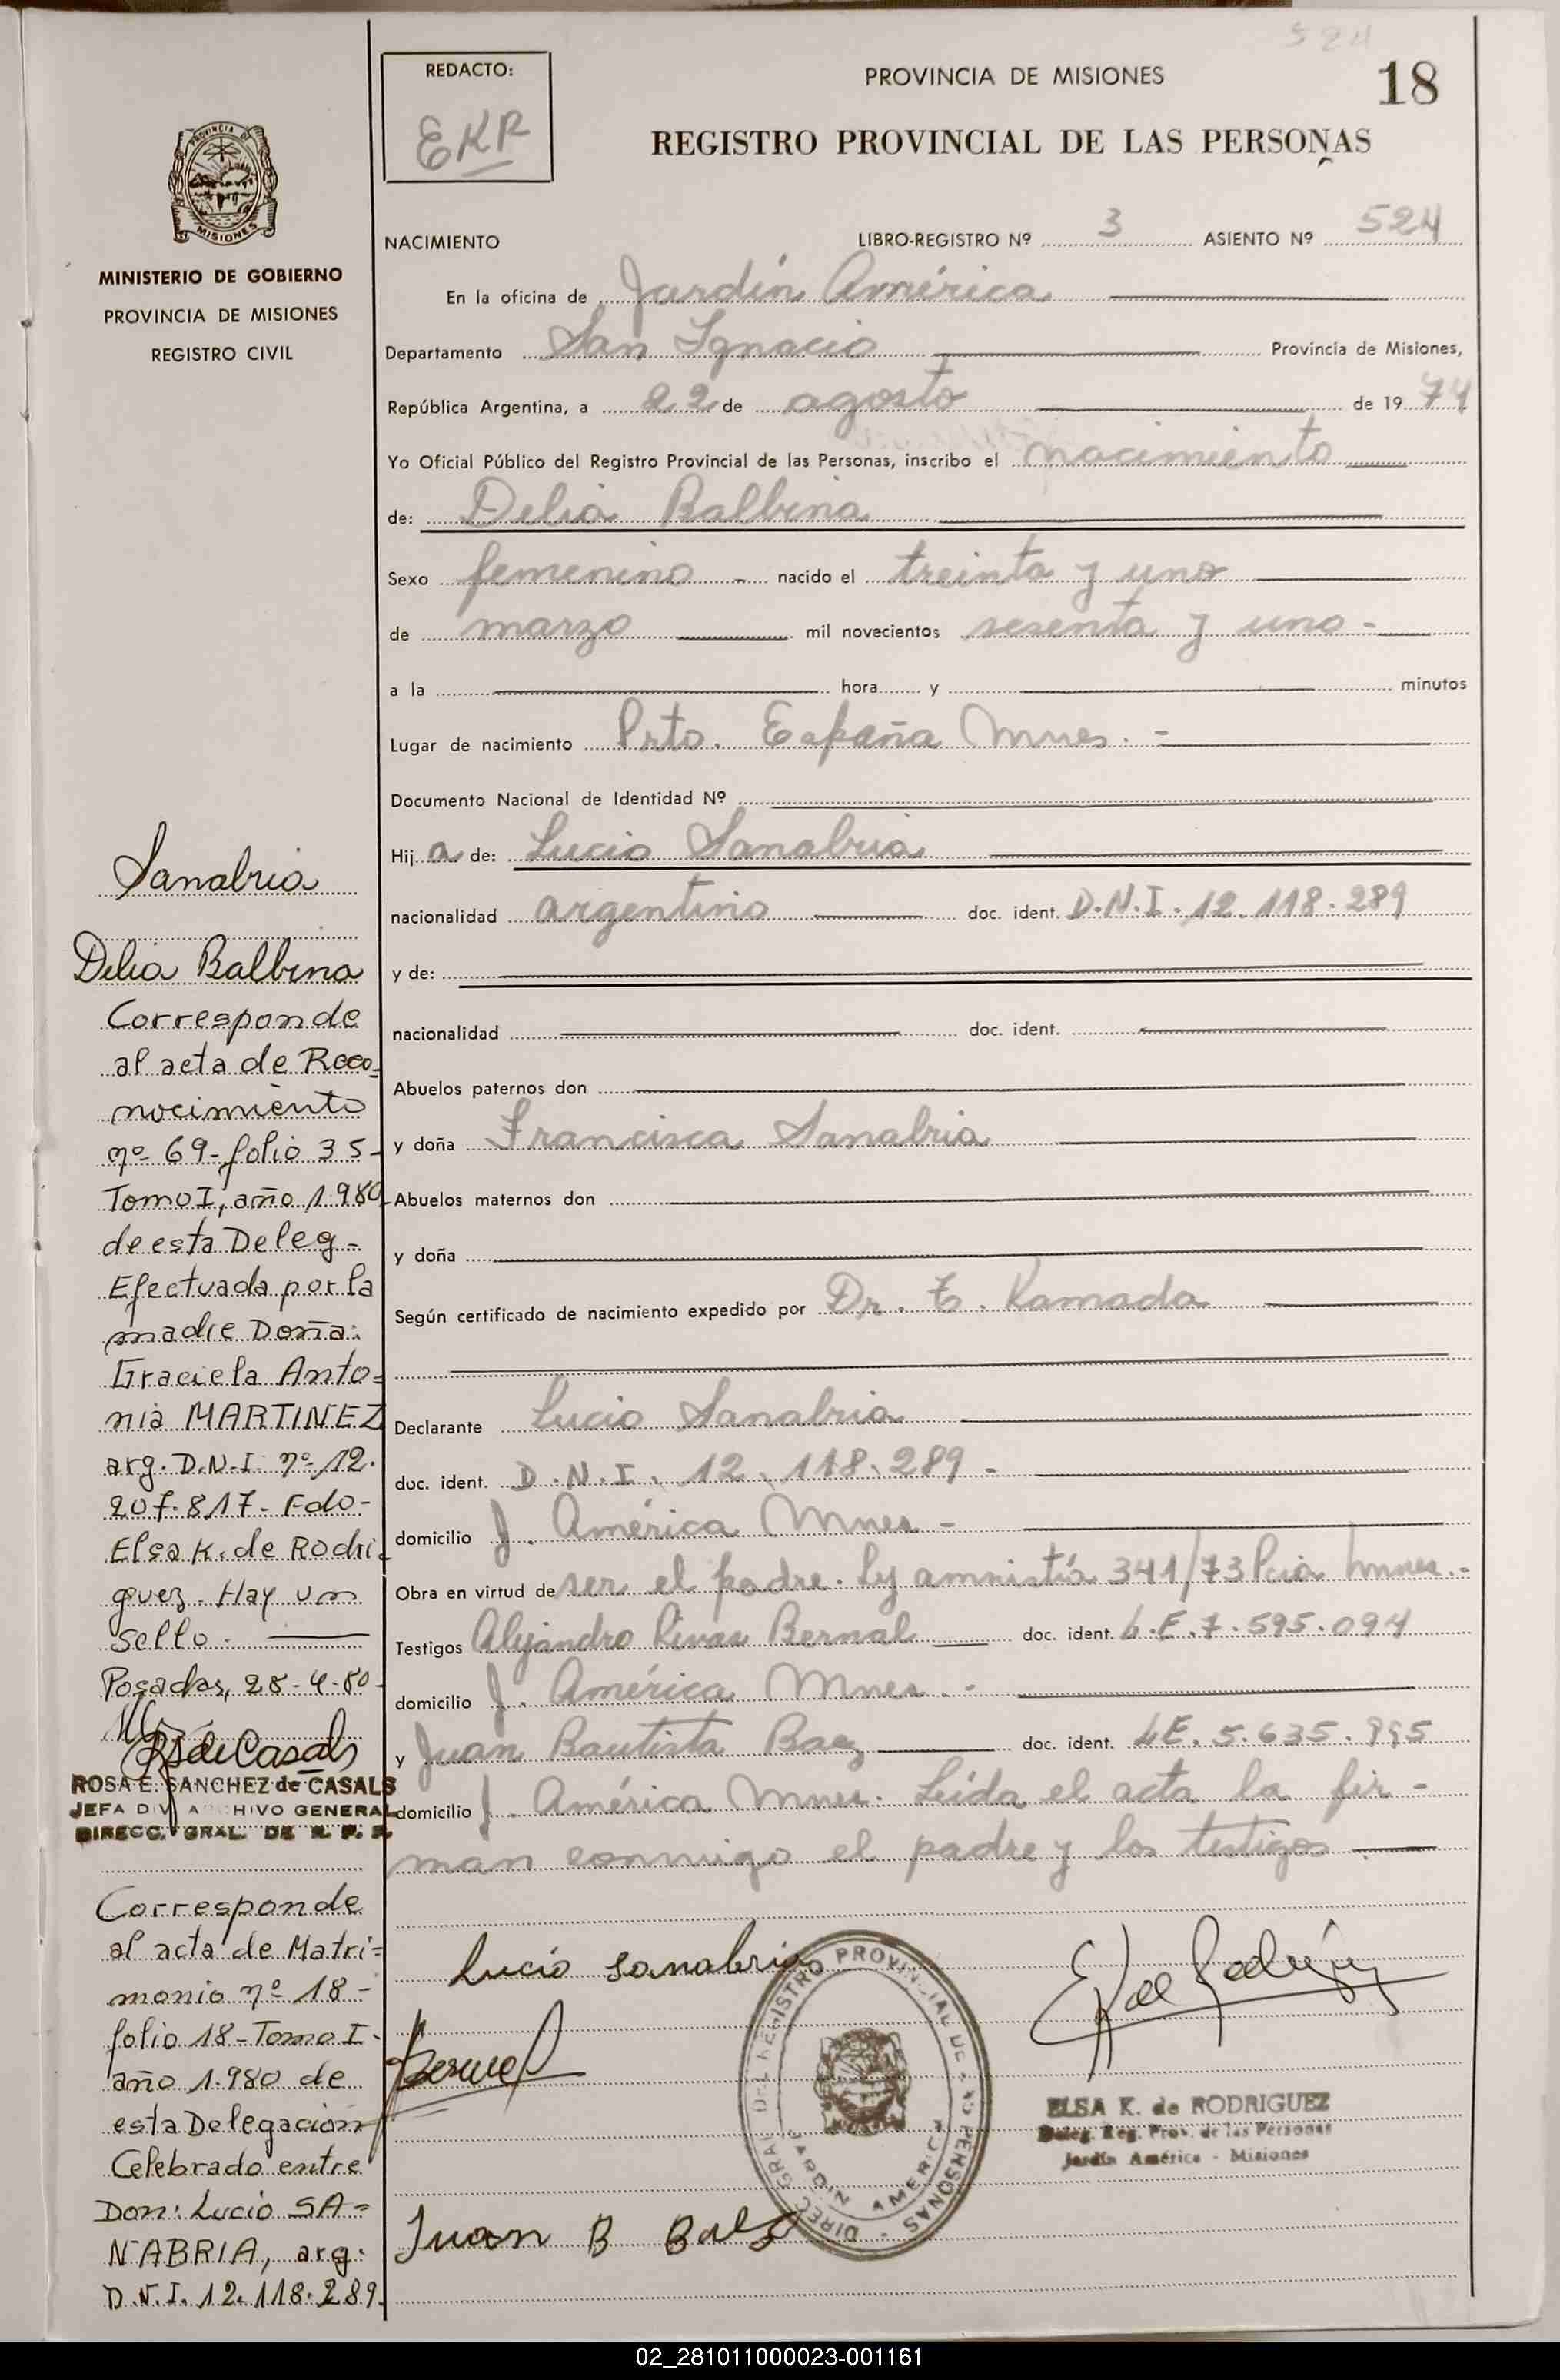 524
REDACTO:
EKR
PROVINCIA DE MISIONES
18
REGISTRO PROVINCIAL DE LAS PERSONAS
PROVINCIA DE
MISIONES
MINISTERIO DE GOBIERNO
PROVINCIA DE MISIONES
REGISTRO CIVIL
NACIMIENTO LIBRO-REGISTRO Nº 3 ASIENTO Nº 524
En la oficina de Jardín América
Departamento San Ignacio Provincia de Misiones,
República Argentina, a 22 de agosto de 1974
Yo Oficial Público del Registro Provincial de las Personas, inscribo el nacimiento
de: Delia Balbina
Sexo femenino - nacido el treinta y uno
de marzo mil novecientos sesenta y uno -
a la hora y minutos
Lugar de nacimiento Prto. España Mnes. -
Documento Nacional de Identidad Nº
Hij a de: Lucio Sanabria
nacionalidad argentino doc. ident. D.N.I. 12.118.289
y de:
nacionalidad doc. ident.
Abuelos paternos don
y doña Francisca Sanabria
Abuelos maternos don
y doña
Según certificado de nacimiento expedido por Dr. T. Kamada
Declarante Lucio Sanabria
doc. ident. D.N.I. 12.118.289 -
domicilio J. América Mnes -
Obra en virtud de ser el padre. Ley amnistía 341/73 Pcia Mnes.-
Testigos Alejandro Rivas Bernal doc. ident. L.E.7.595.094
domicilio J. América Mnes. -
y Juan Bautista Baez doc. ident. LE. 5.635.995
domicilio J. América Mnes. Leída el acta la fir-
man conmigo el padre y los testigos
Lucio Sanabria
Bernal
Juan B Baez
DIREC. GRAL. DEL REGISTRO PROVINCIAL DE LAS PERSONAS
JARDIN AMERICA
ELSA K. de RODRIGUEZ
Deleg. Reg. Prov. de las Personas
Jardín América - Misiones
Sanabria
Delia Balbina
Corresponde
al acta de Reco-
nocimiento
nº 69-folio 35-
Tomo I, año 1.980
de esta Deleg-
Efectuada por la
madre Doña:
Graciela Anto-
nia MARTINEZ
arg. D.N.I. nº 12.
207.817- Fdo-
Elsa K. de Rodri-
guez. Hay un
sello.
Posadas, 28-4-80-
RSdeCasals
ROSA E. SANCHEZ de CASALS
JEFA DIV ARCHIVO GENERAL
DIRECC. GRAL. DE R. P. P.
Corresponde
al acta de Matri-
monio nº 18-
folio 18-Tomo I-
año 1.980 de
esta Delegación
Celebrado entre
Don: Lucio SA-
NABRIA, arg.
D.N.I. 12.118.289.
02_281011000023-001161